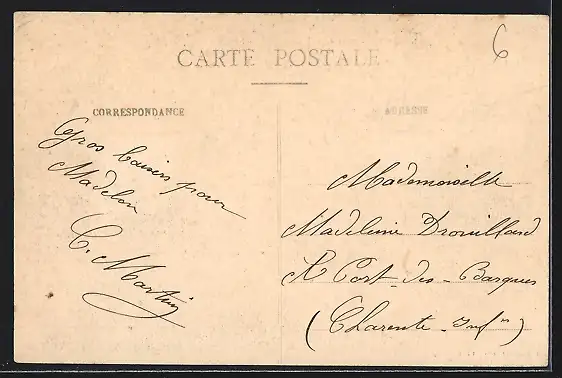 6
CARTE POSTALE
CORRESPONDANCE
ADRESSE
Gros baisers pour
Madelon
C. Martin
Mademoiselle
Madeleine Drouillard
Port-des-Barques
(Charente-Infre)